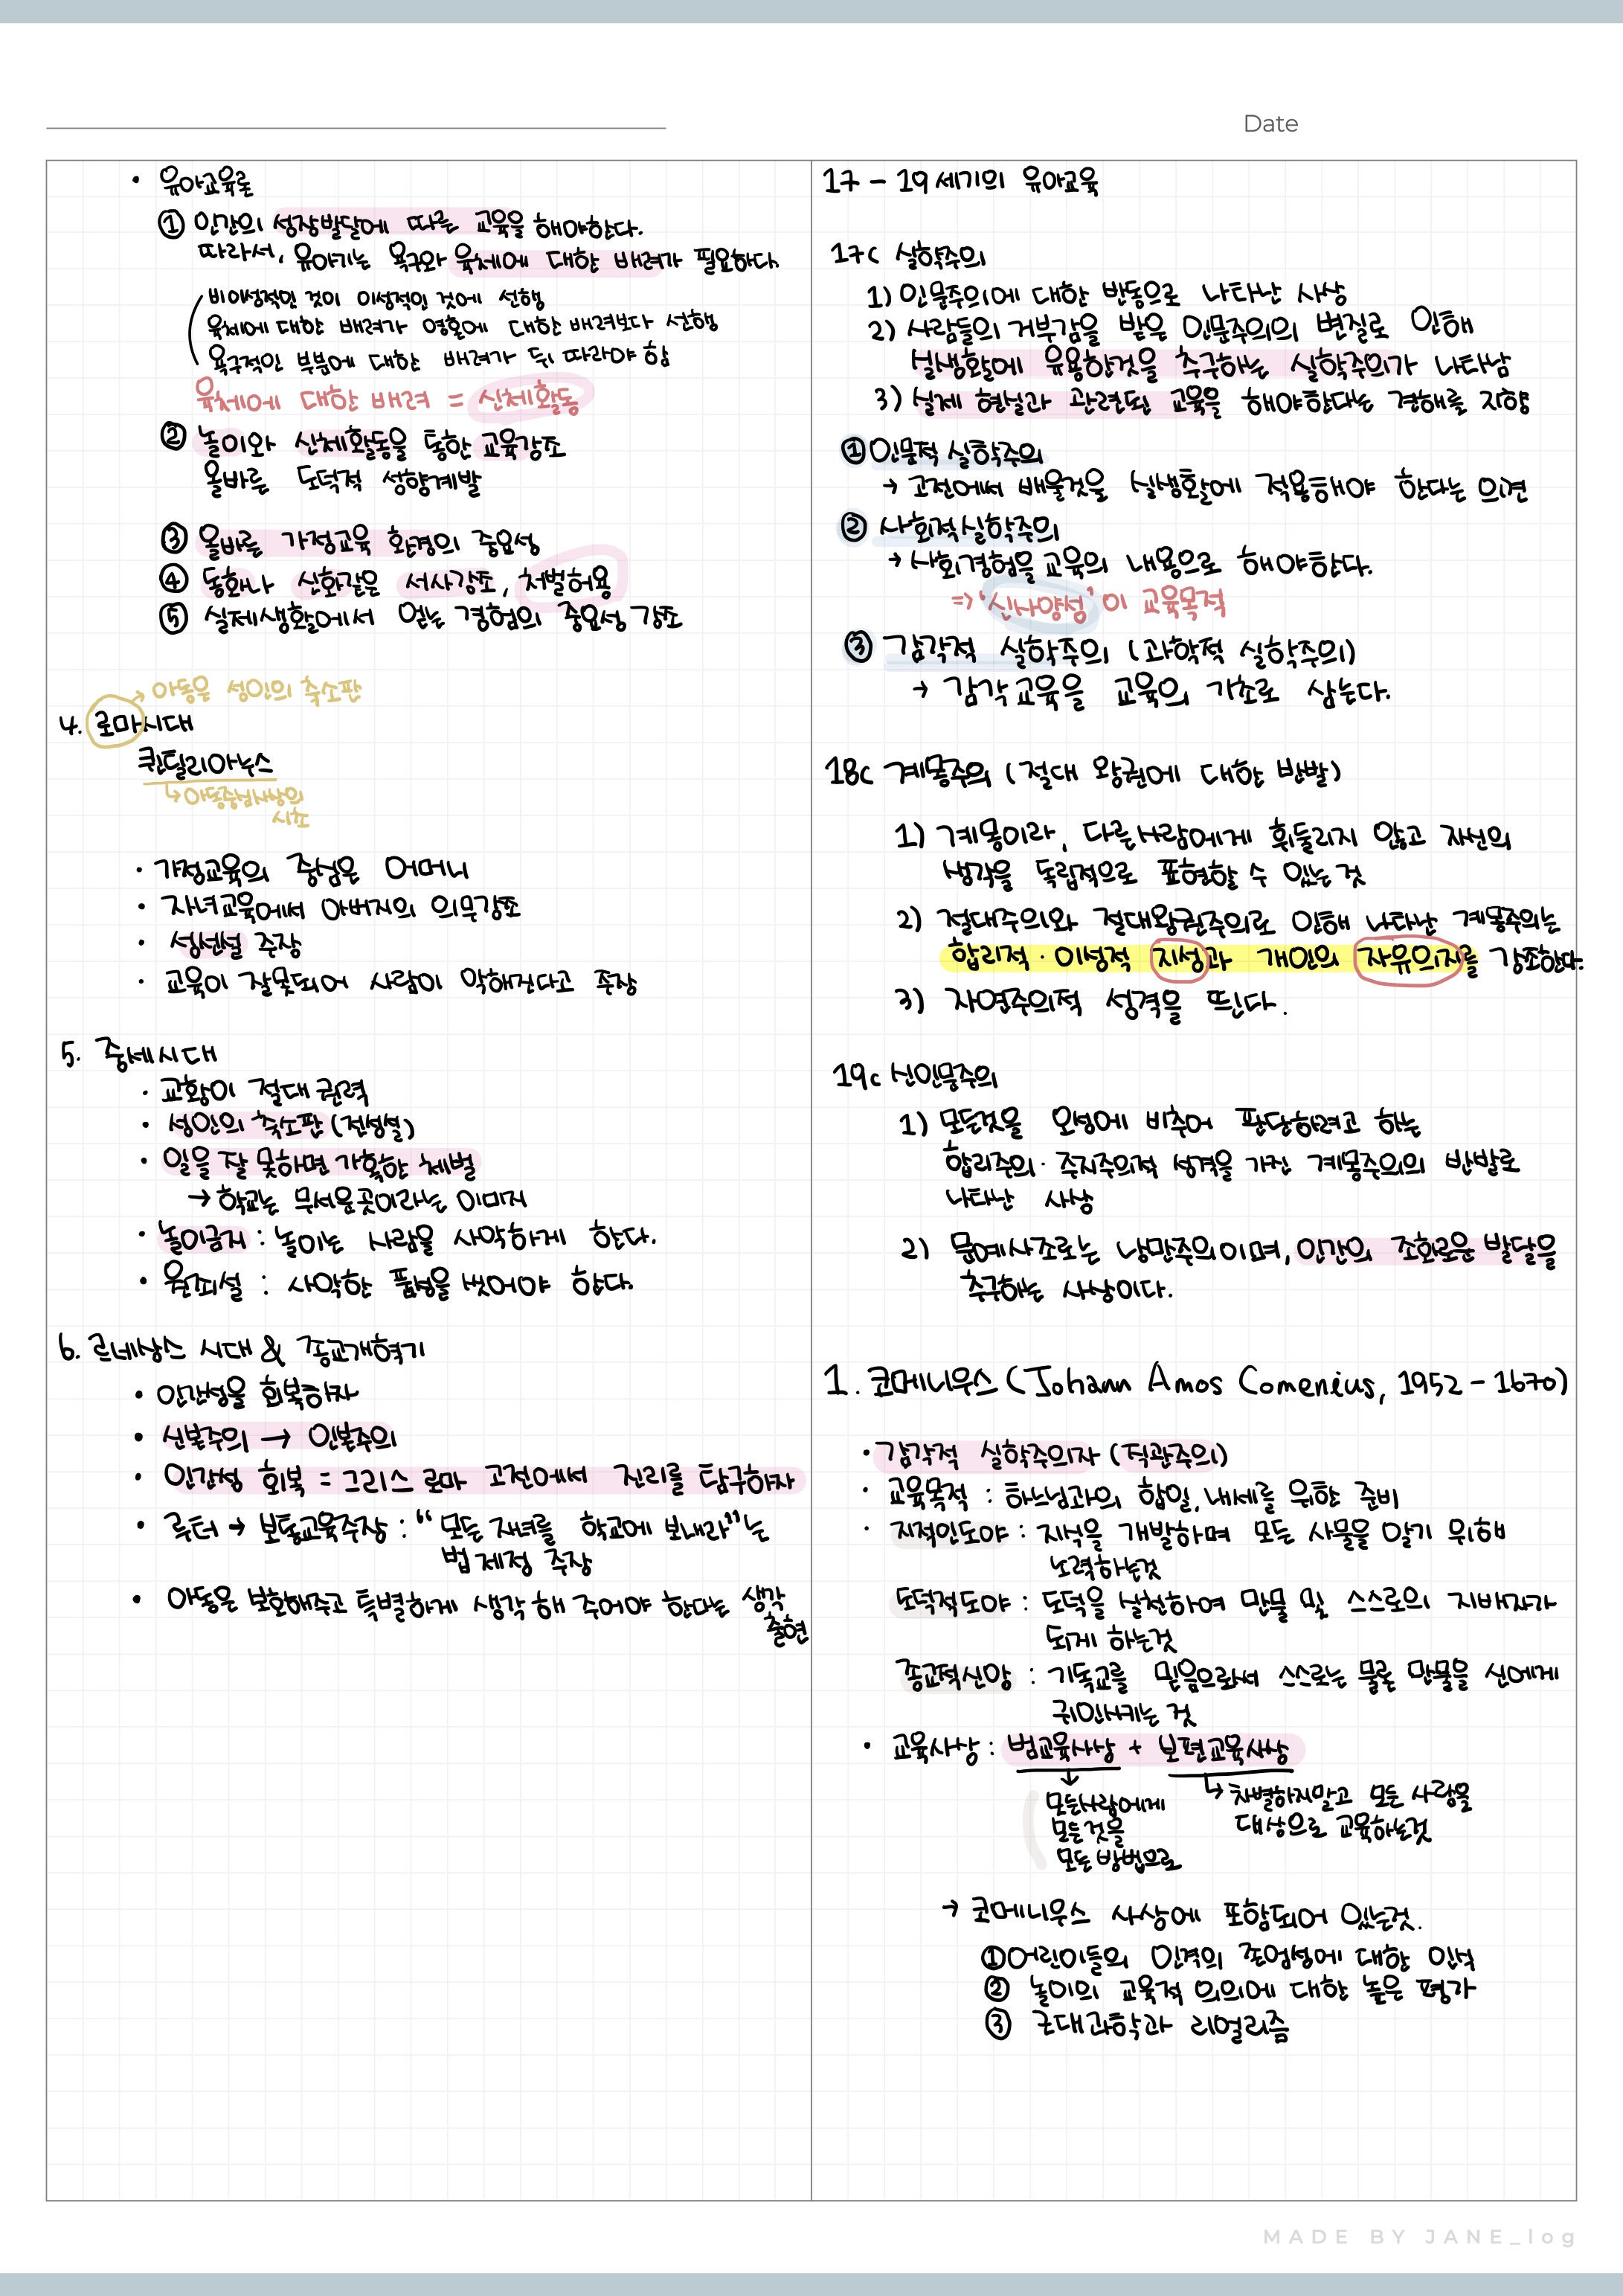 Date
• 유아교육론
① 인간의 성장발달에 따른 교육을 해야한다.
따라서, 유아기는 욕구와 육체에 대한 배려가 필요하다.
비이성적인 것이 이성적인 것에 선행
육체에 대한 배려가 영혼에 대한 배려보다 선행
욕구적인 부분에 대한 배려가 뒤따라야 함
육체에 대한 배려 = 신체활동
② 놀이와 신체활동을 통한 교육강조
올바른 도덕적 성향계발
③ 올바른 가정교육 환경의 중요성
④ 동화나 신화같은 서사강조, 처벌허용
⑤ 실제생활에서 얻는 경험의 중요성 강조
→ 아동은 성인의 축소판
4. 로마시대
퀸틸리아누스
↳ 아동중심사상의
시초
• 가정교육의 중심은 어머니
• 자녀교육에서 아버지의 의무강조
• 성선설 주장
• 교육이 잘못되어 사람이 악해진다고 주장
5. 중세시대
• 교황이 절대권력
• 성인의 축소판 (전성설)
• 일을 잘 못하면 가혹한 체벌
→ 학교는 무서운곳이라는 이미지
• 놀이금지 : 놀이는 사람을 사악하게 한다.
• 원죄설 : 사악한 품성을 벗어야 한다.
6. 르네상스 시대 & 종교개혁기
• 인간성을 회복하자
• 신본주의 → 인본주의
• 인간성 회복 = 그리스 로마 고전에서 진리를 탐구하자
• 루터 → 보통교육주장 : “모든 자녀를 학교에 보내라”는
법 제정 주장
• 아동은 보호해주고 특별하게 생각 해 주어야 한다는 생각
출현
17 - 19세기의 유아교육
17c 실학주의
1) 인문주의에 대한 반동으로 나타난 사상
2) 사람들의 거부감을 받은 인문주의의 변질로 인해
실생활에 유용한것을 추구하는 실학주의가 나타남
3) 실제 현실과 관련된 교육을 해야한다는 경해를 지향
① 인문적 실학주의
→ 고전에서 배울것을 실생활에 적용해야 한다는 의견
② 사회적실학주의
→ 사회경험을 교육의 내용으로 해야한다.
=> ‘신사양성’이 교육목적
③ 감각적 실학주의 (과학적 실학주의)
→ 감각교육을 교육의 기초로 삼는다.
18c 계몽주의 (절대 왕권에 대한 반발)
1) 계몽이란, 다른사람에게 휘둘리지 않고 자신의
생각을 독립적으로 표현할 수 있는 것
2) 절대주의와 절대왕권주의로 인해 나타난 계몽주의는
합리적 · 이성적 지성과 개인의 자유의지를 강조한다.
3) 자연주의적 성격을 띈다.
19c 신인문주의
1) 모든것을 오성에 비추어 판단하려고 하는
합리주의 · 주지주의적 성격을 가진 계몽주의의 반발로
나타난 사상
2) 문예사조로는 낭만주의이며, 인간의 조화로운 발달을
추구하는 사상이다.
1. 코메니우스 (Johann Amos Comenius, 1952 - 1670)
• 감각적 실학주의자 (직관주의)
• 교육목적 : 하느님과의 합일, 내세를 위한 준비
• 지적인도야 : 지식을 개발하며 모든 사물을 알기 위해
노력하는것
도덕적도야 : 도덕을 실천하여 만물 및 스스로의 지배자가
되게 하는것
종교적신앙 : 기독교를 믿음으로써 스스로는 물론 만물을 신에게
귀인시키는 것
• 교육사상 : 범교육사상 + 보편교육사상
↓ 모든사람에게
모든것을
모든 방법으로
↳ 차별하지말고 모든 사람을
대상으로 교육하는것
→ 코메니우스 사상에 포함되어 있는것.
① 어린이들의 인격의 존엄성에 대한 인식
② 놀이의 교육적 의의에 대한 높은 평가
③ 근대과학과 리얼리즘
MADE BY JANE_log